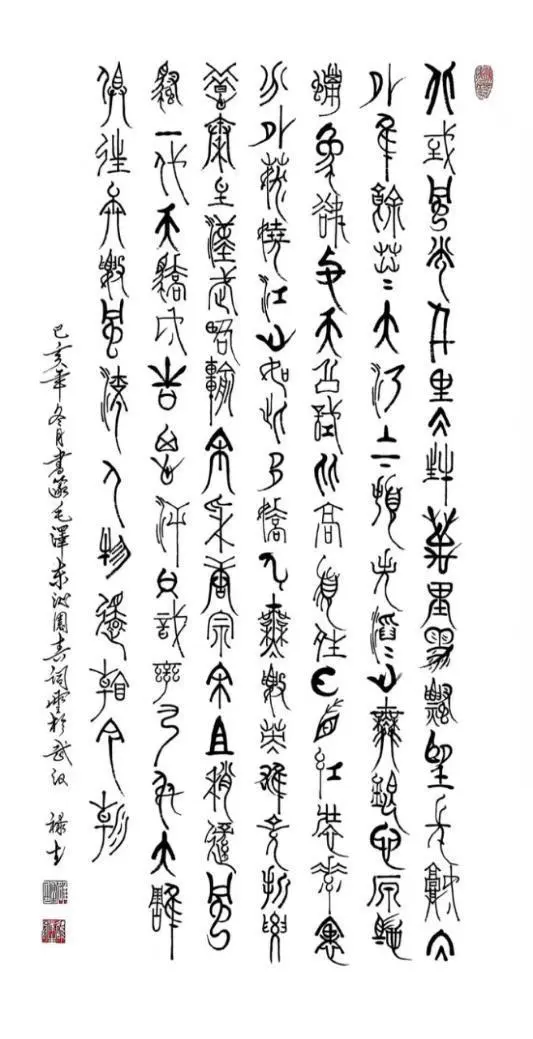 北國風光千里冰封萬里雪飄望長城内
外隹餘莽=大河上下頓失滔=山舞銀蛇原馳
蠟象欲与天公試比高須晴日看紅裝素裹
分外妖嬈江山如此多嬌引無數英雄競折腰
惜秦皇漢武略輸文采唐宗宋且稍遜風
騷一代天驕成吉思汗只識彎弓射大雕
俱往矣數風流人物還看今朝
己亥年冬月書篆毛澤東沁園春詞雪於武汉